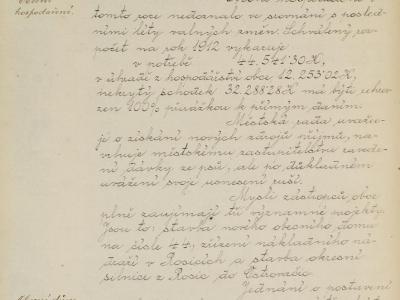 hospodaření.
tomto roce nedoznalo ve srovnání s posled-
ními léty valných změn. Schválený roz-
počet na rok 1912 vykazuje
v potřebě 44.541·30 K,
v úhradě z hospodářství obce 12.253·02 K,
nekrytý schodek 32.288·28 K má býti uhra-
zen 90% přirážkou k přímým daním.
Městská rada uvažu-
je o získání nových zdrojů příjmů, na-
vrhuje městskému zastupitelstvu zavede-
ní dávky ze psů, ale po důkladném
uvážení svoje usnesení ruší.
Mysli zástupců obce
plně zaujímají tři významné projekty.
Jsou to: stavba nového obecního domu
na čísle 44, zřízení nákladního ná-
draží v Rosicích a stavba okresní
silnice z Rosic do Ostrovačic.
Jednání o postavení